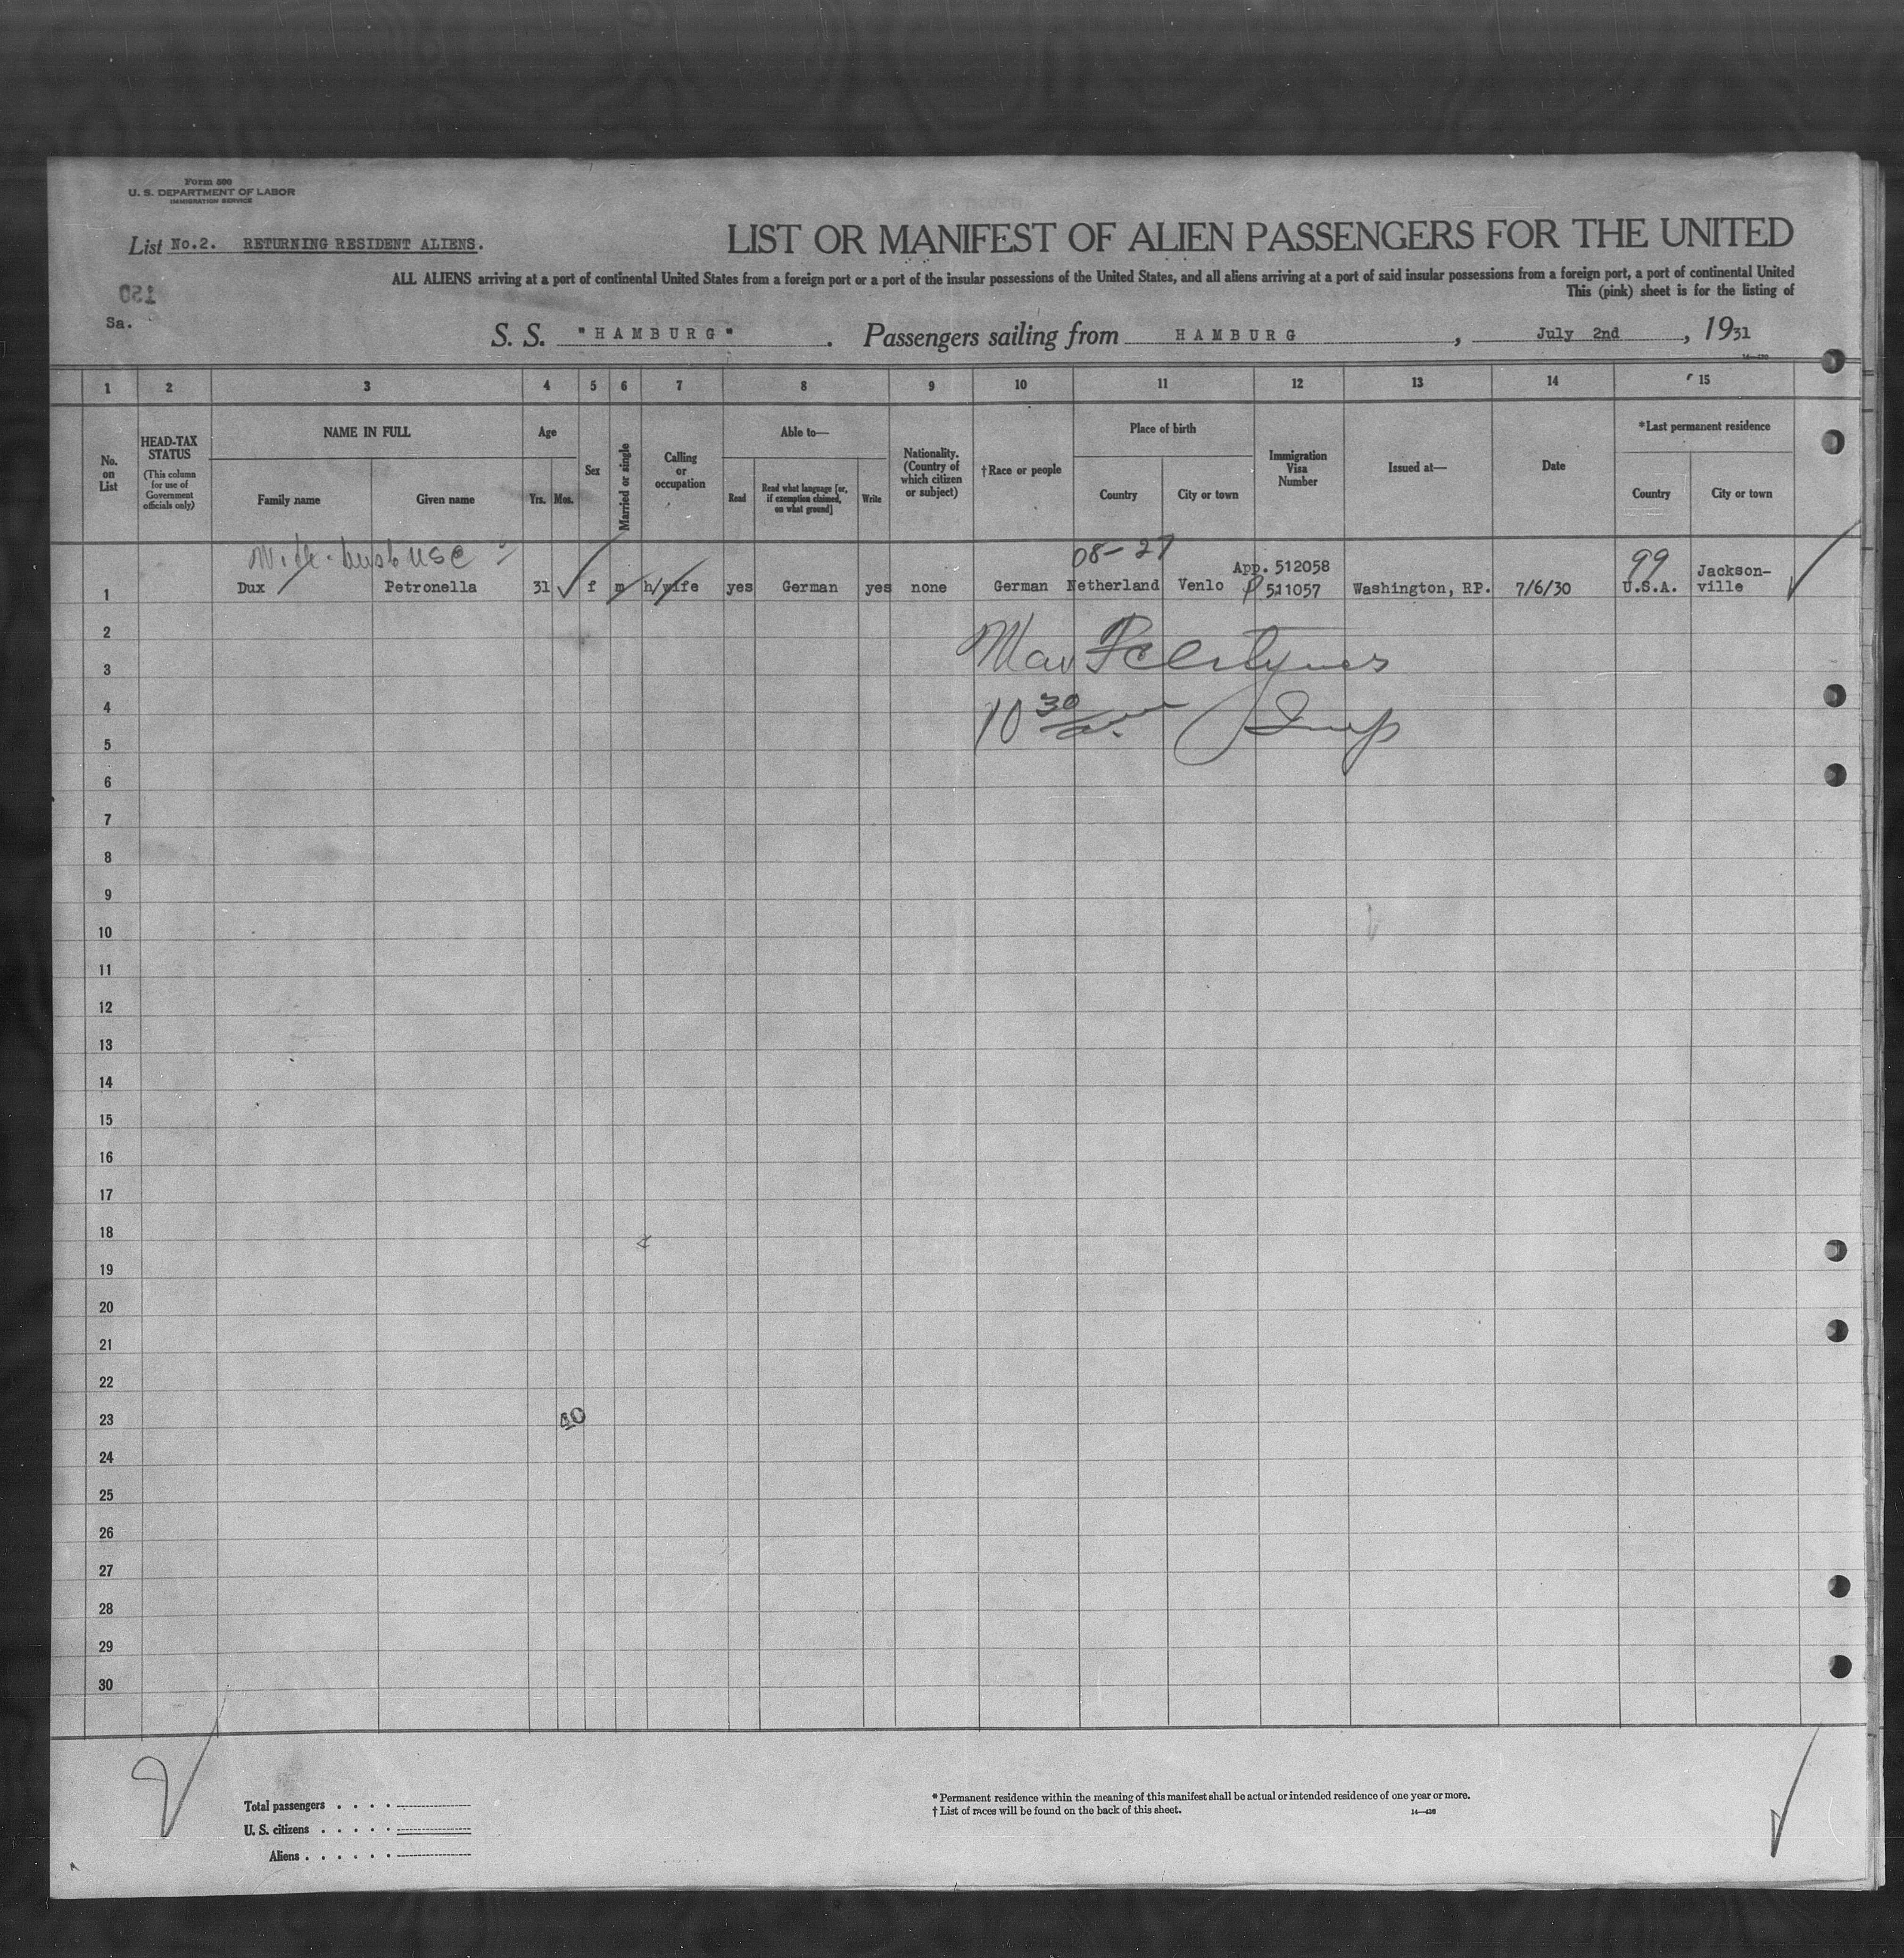 Form 500
U. S. DEPARTMENT OF LABOR
IMMIGRATION SERVICE
List No.2. RETURNING RESIDENT ALIENS.
LIST OR MANIFEST OF ALIEN PASSENGERS FOR THE UNITED
ALL ALIENS arriving at a port of continental United States from a foreign port or a port of the insular possessions of the United States, and all aliens arriving at a port of said insular possessions from a foreign port, a port of continental United
This (pink) sheet is for the listing of
150
Sa.
S. S. "HAMBURG". Passengers sailing from HAMBURG, July 2nd, 1931
1 2 3 4 5 6 7 8 9 10 11 12 13 14 15
No. on List
HEAD-TAX STATUS
(This column for use of Government officials only)
NAME IN FULL
Family name Given name
Age
Yrs. Mos.
Sex
Married or single
Calling or occupation
Able to—
Read
Read what language [or, if exemption claimed, on what ground]
Write
Nationality. (Country of which citizen or subject)
†Race or people
Place of birth
Country City or town
Immigration Visa Number
Issued at—
Date
*Last permanent residence
Country City or town
USC
08-27
99
1 Dux Petronella 31 f m h/wife yes German yes none German Netherland Venlo App. 512058 511057 Washington, RP. 7/6/30 U.S.A. Jackson-ville
2
3
4
10 30
Insp
5
6
7
8
9
10
11
12
13
14
15
16
17
18
19
20
21
22
23
40
24
25
26
27
28
29
30
Total passengers . . . .
U. S. citizens . . . . .
Aliens . . . . . .
* Permanent residence within the meaning of this manifest shall be actual or intended residence of one year or more.
† List of races will be found on the back of this sheet.